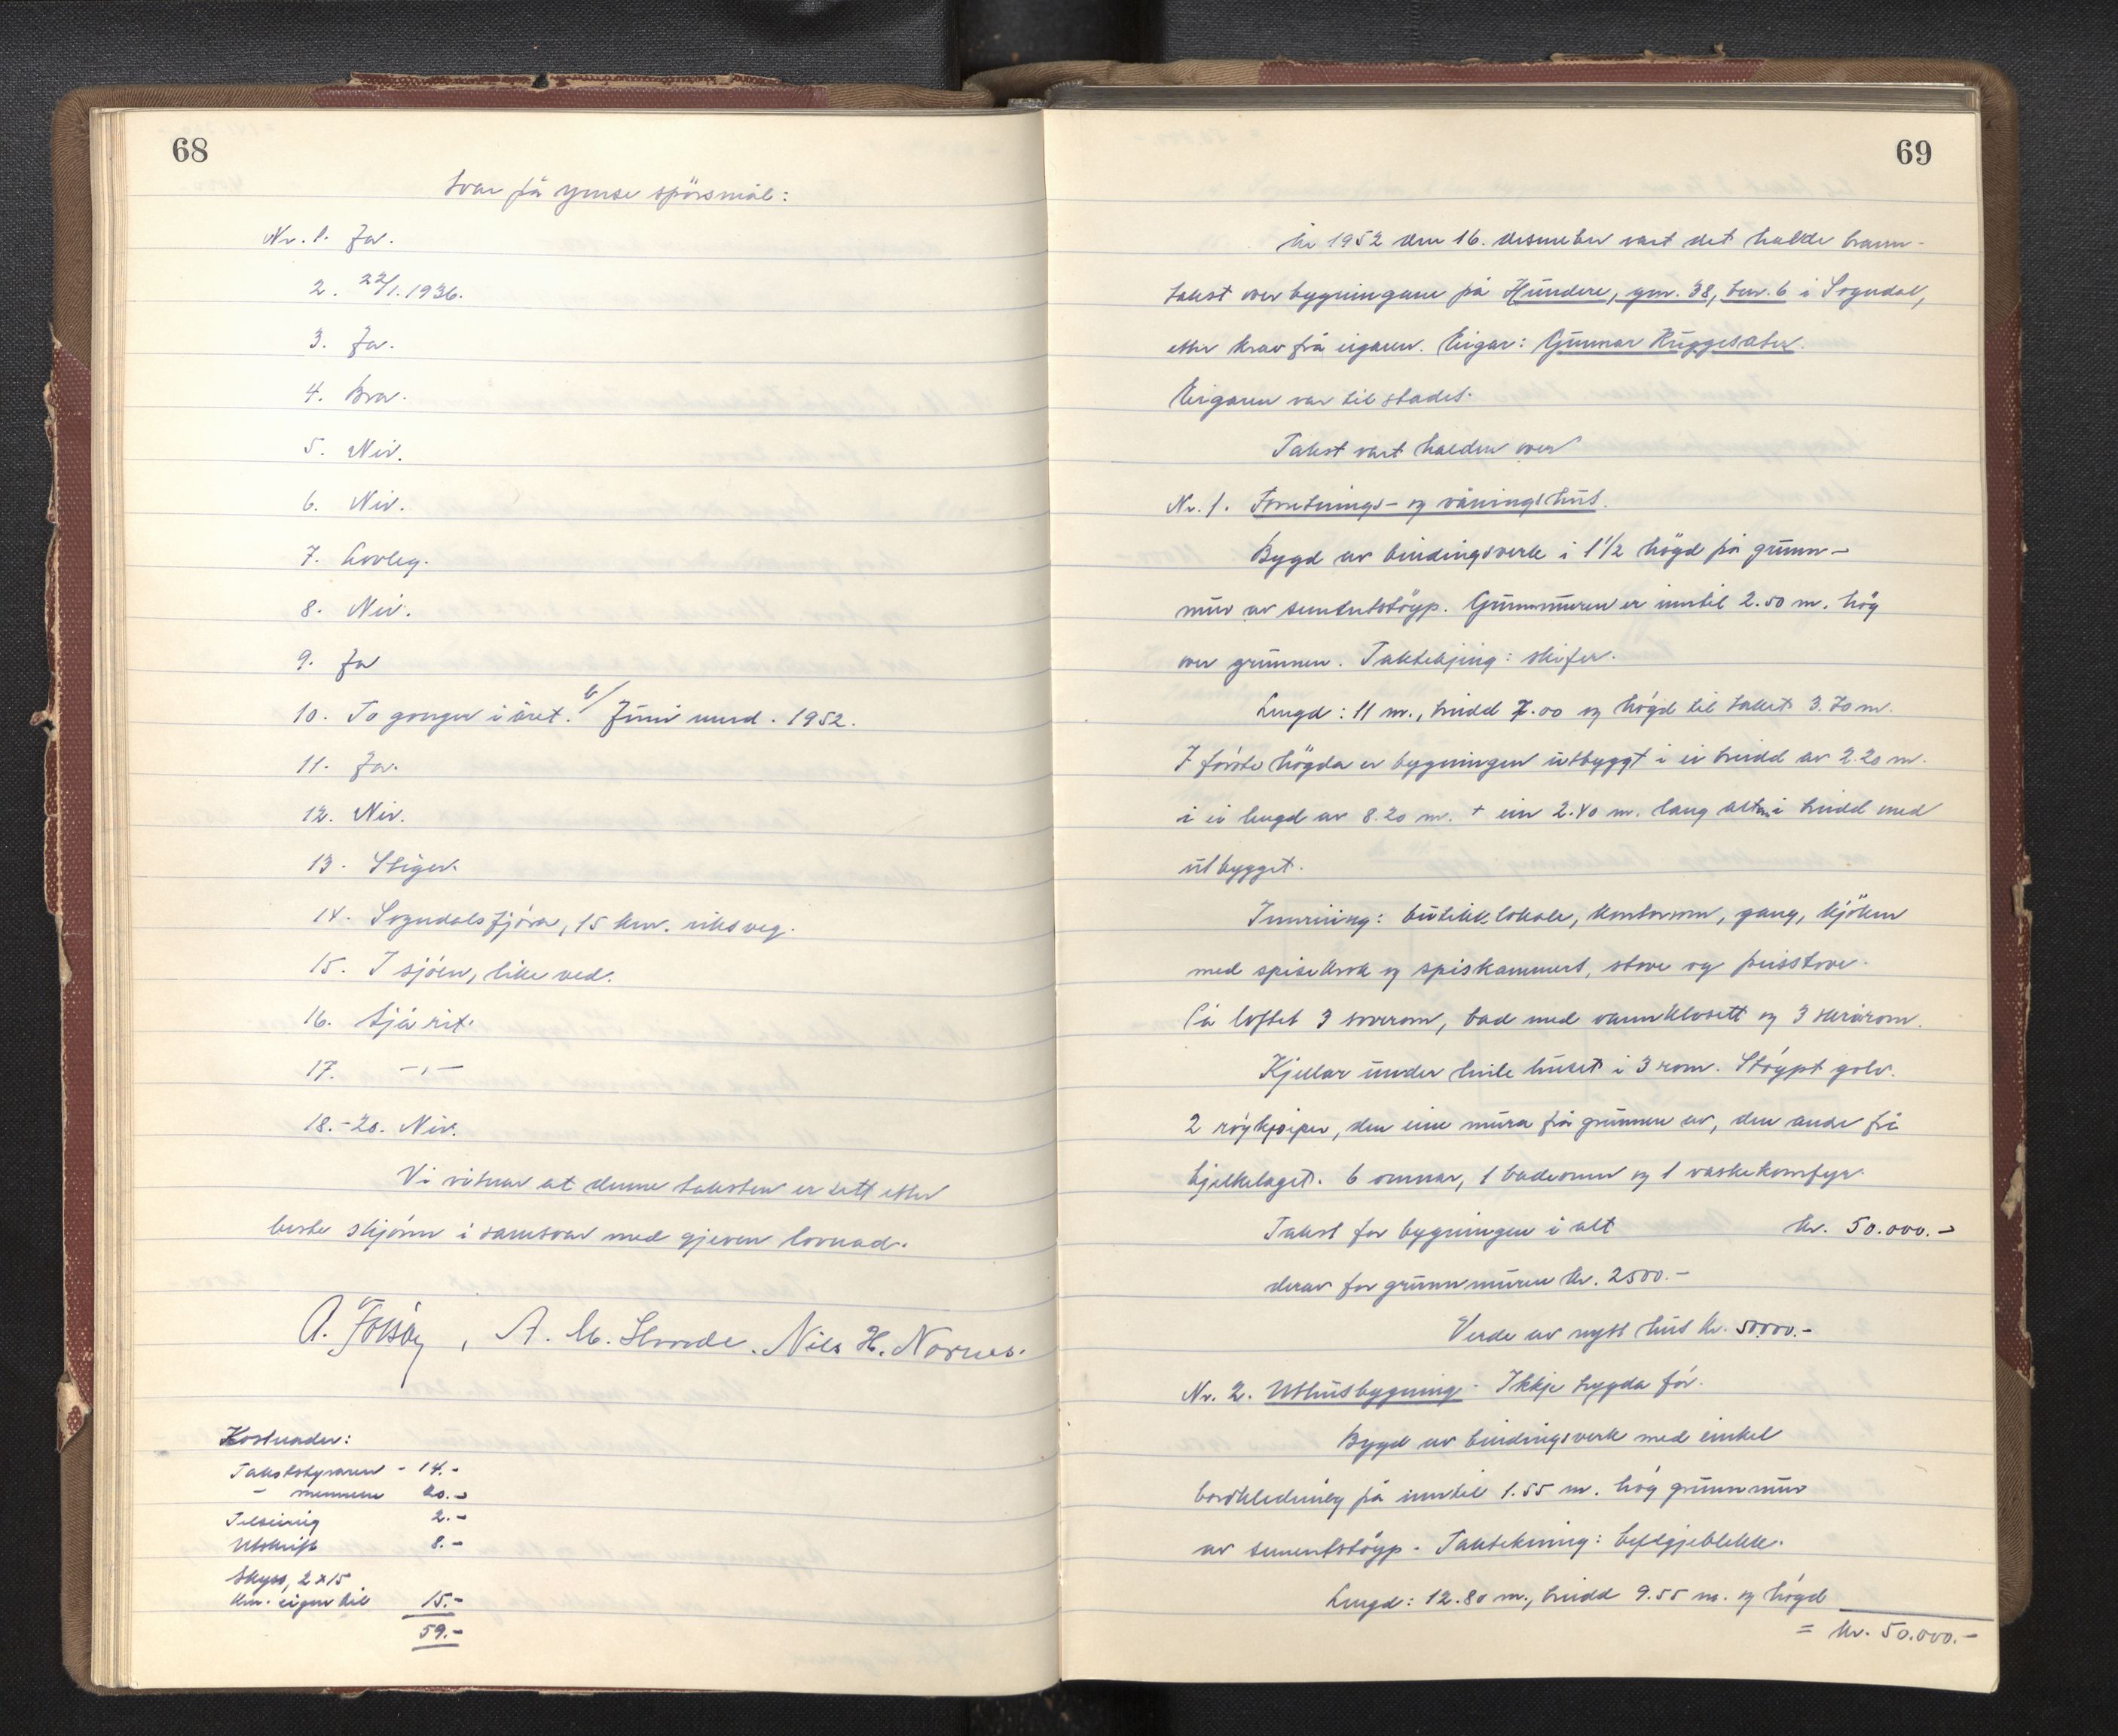 68
Svar på ymse spörsmål:
Nr. 1. Ja.
2. 22/1.1936.
3. Ja.
4. Bra.
5. Nei.
6. Nei.
7. Lovleg.
8. Nei.
9. Ja
10. To gonger i året. Juni mnd. 1952.
11. Ja.
12. Nei.
13. Stiger.
14. Sogndalsfjöra, 15 km. riksveg.
15. I sjöen, like ved.
16. Sjå rit.
17. —„—
18.-20. Nei.
Vi vitnar at denne taksten er sett etter
beste skjönn i samsvar med gjeven lovnad.
A. M. Hovde. Nils H. Nornes.
Kostnader:
Takststyraren - 14.-
— mennene 20.-
Tilseiing 2.-
Utskrift 8.-
Skyss, 2 x 15
km. eigen bil 15.-
59.-
69
År 1952 den 16. desember vart det halde brann-
takst over bygningane på Hundere, gnr. 38, bnr. 6 i Sogndal,
etter krav frå eigaren. Eigar: Gunnar Ruggesæter.
Eigaren var til stades.
Takst vart halden over
Nr. 1. Forretnings- og våningshus.
Bygd av bindingsverk i 1 1/2 högd på grunn-
mur av sementstöyp. Grunnmuren er inntil 2.50 m. hög
over grunnen. Taktekjing: skifer.
Lengd: 11 m., breidd 7.00 og högd til taket 3.70 m.
I förste högda er bygningen utbyggt i ei breidd av 2.20 m.
i ei lengd av 8.20 m. + ein 2.40 m. lang altan i breidd med
utbygget.
Innreiing: butikklokale, kontorrom, gang, kjöken
med spisekrok og spiskammers, stove og peisstove.
På loftet 3 soverom, bad med vannklosett og 3 skrårom.
Kjellar under heile huset i 3 rom. Stöypt golv.
2 röykpiper, den eine mura frå grunnen av, den andre frå
bjelkelaget. 6 omnar, 1 badeomn og 1 vaskekomfyr.
Takst for bygningen i alt kr. 50.000.-
derav for grunnmuren kr. 2500.-
Verde av nytt hus kr. 50000.-
Nr. 2. Uthusbygning. Ikkje trygda för.
Bygd av bindingsverk med einkel
bordkledning på inntil 1.55 m. hög grunnmur
av sementstöyp. Taktekning: bylgjeblekk.
Lengd: 12.80 m., breidd 9.55 m. og högd
= kr. 50.000.-